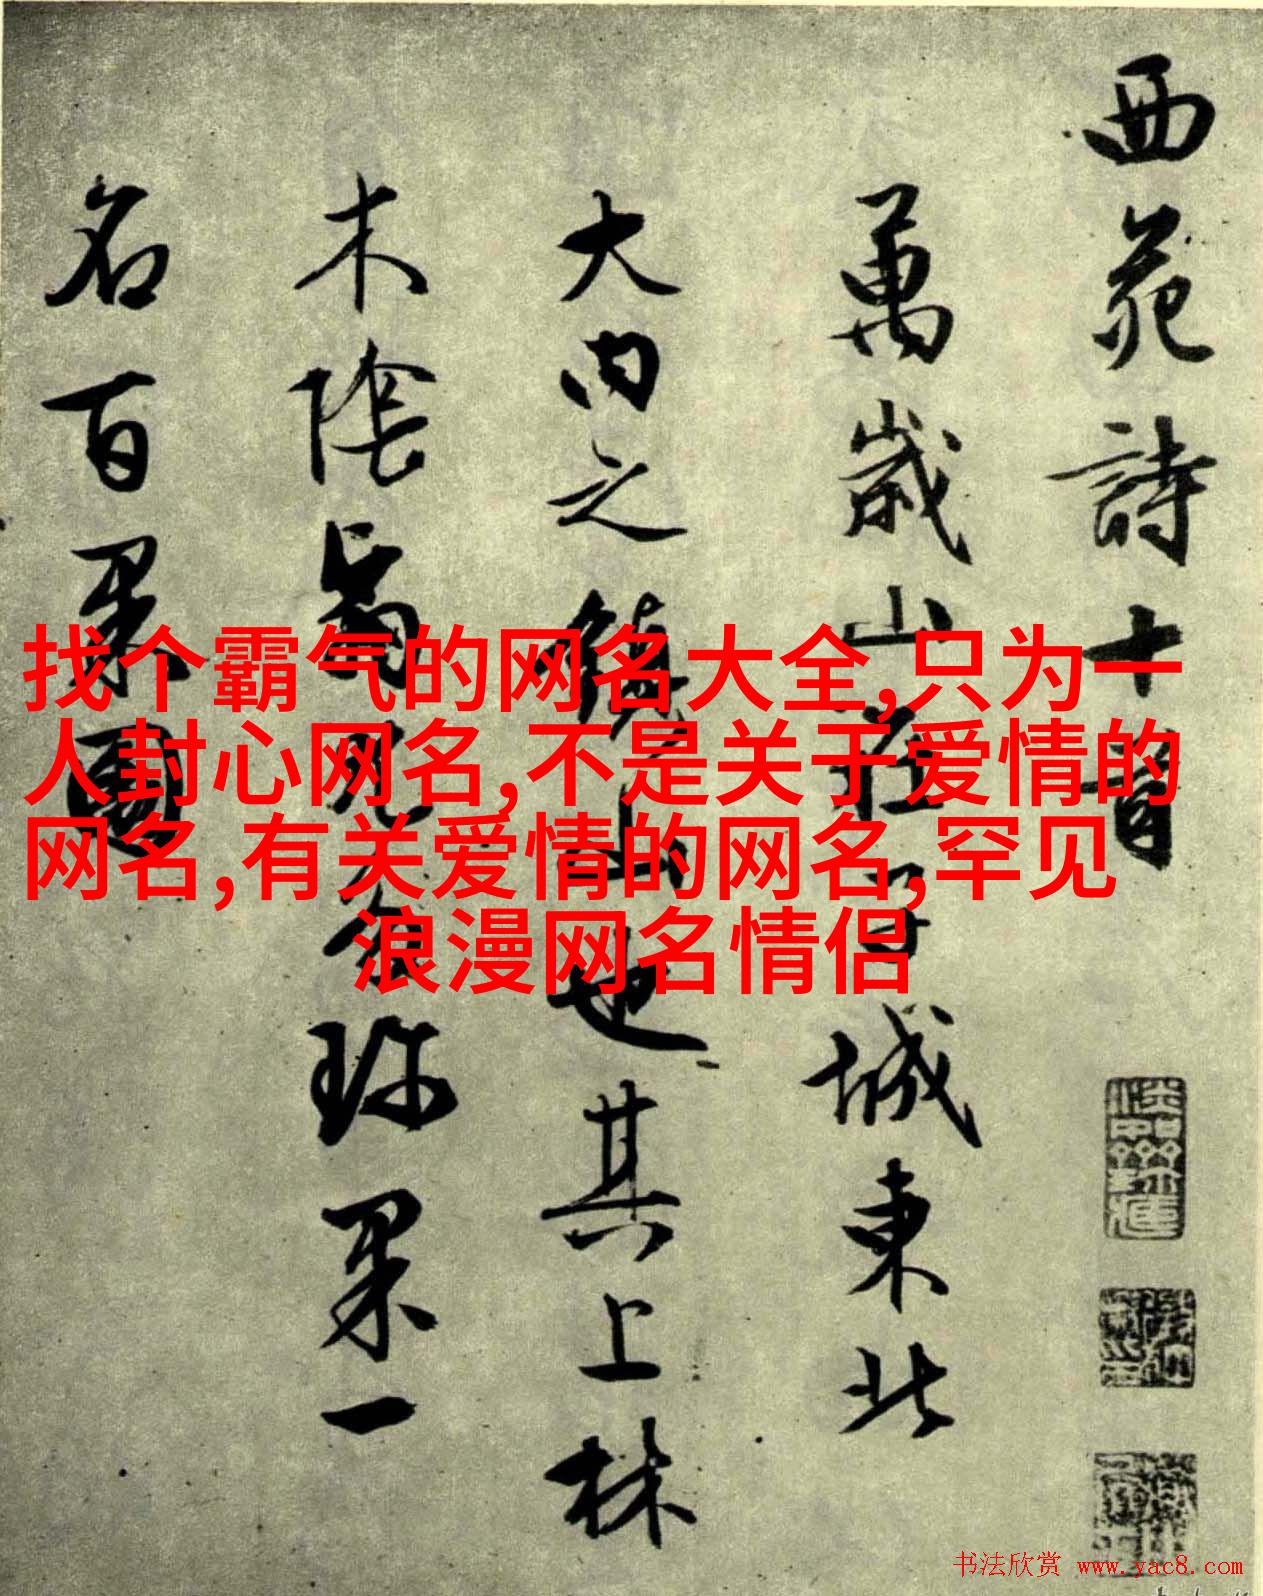 西苑詩十首
萬歲山在子城東北
大内之鎮山也其上林
木陰翳尤多珍果一
名百果園
找个霸气的网名大全,只为一
人封心网名,不是关于爱情的
网名,有关爱情的网名,罕见
浪漫网名情侣
书法欣赏 www.yac8.com